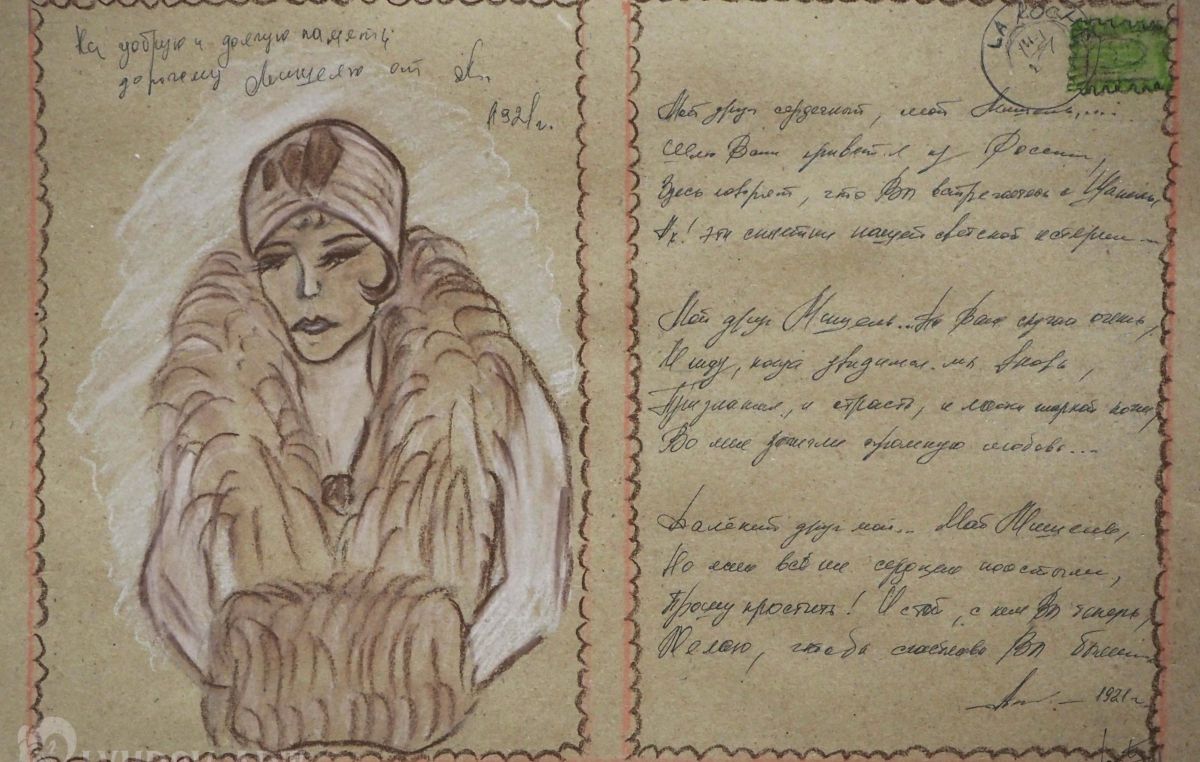 На добрую и долгую память
дорогому Мишелю от
1921г.
LA ROCH
Мой друг сердечный, мой Мишель....
Шлю Вам привет из России,
Здесь говорят, что Вы встречаетесь с Шанель,
Ах! Эти сплетни нашей светской истерии...
Мой друг Мишель... По Вам скучаю очень,
И жду, когда увидимся мы вновь,
Признания, и страсть, и ласки жаркой ночи,
Во мне зажгли огромную любовь...
Далёкий друг мой... Мой Мишель,
Но всё же сердцем поостыли,
Прошу простить! И с той, с кем Вы теперь,
Желаю, чтобы счастливы Вы были
1921г